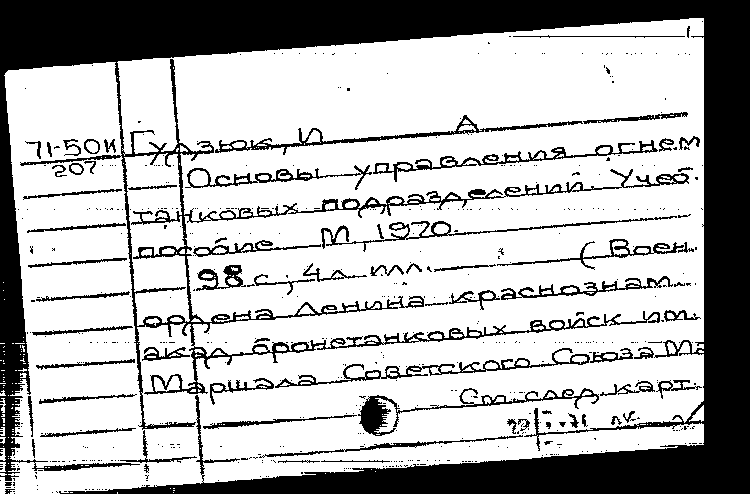 71-50к Гудзюк, И А
207
Основы управления огнем
танковых подразделений. Учеб.
пособие М, 1970.
98 с; 4 л. ил. ( Воен.
ордена Ленина краснознам.
акад. бронетанковых войск им.
Маршала Советского Союза Ма
См. след. карт.